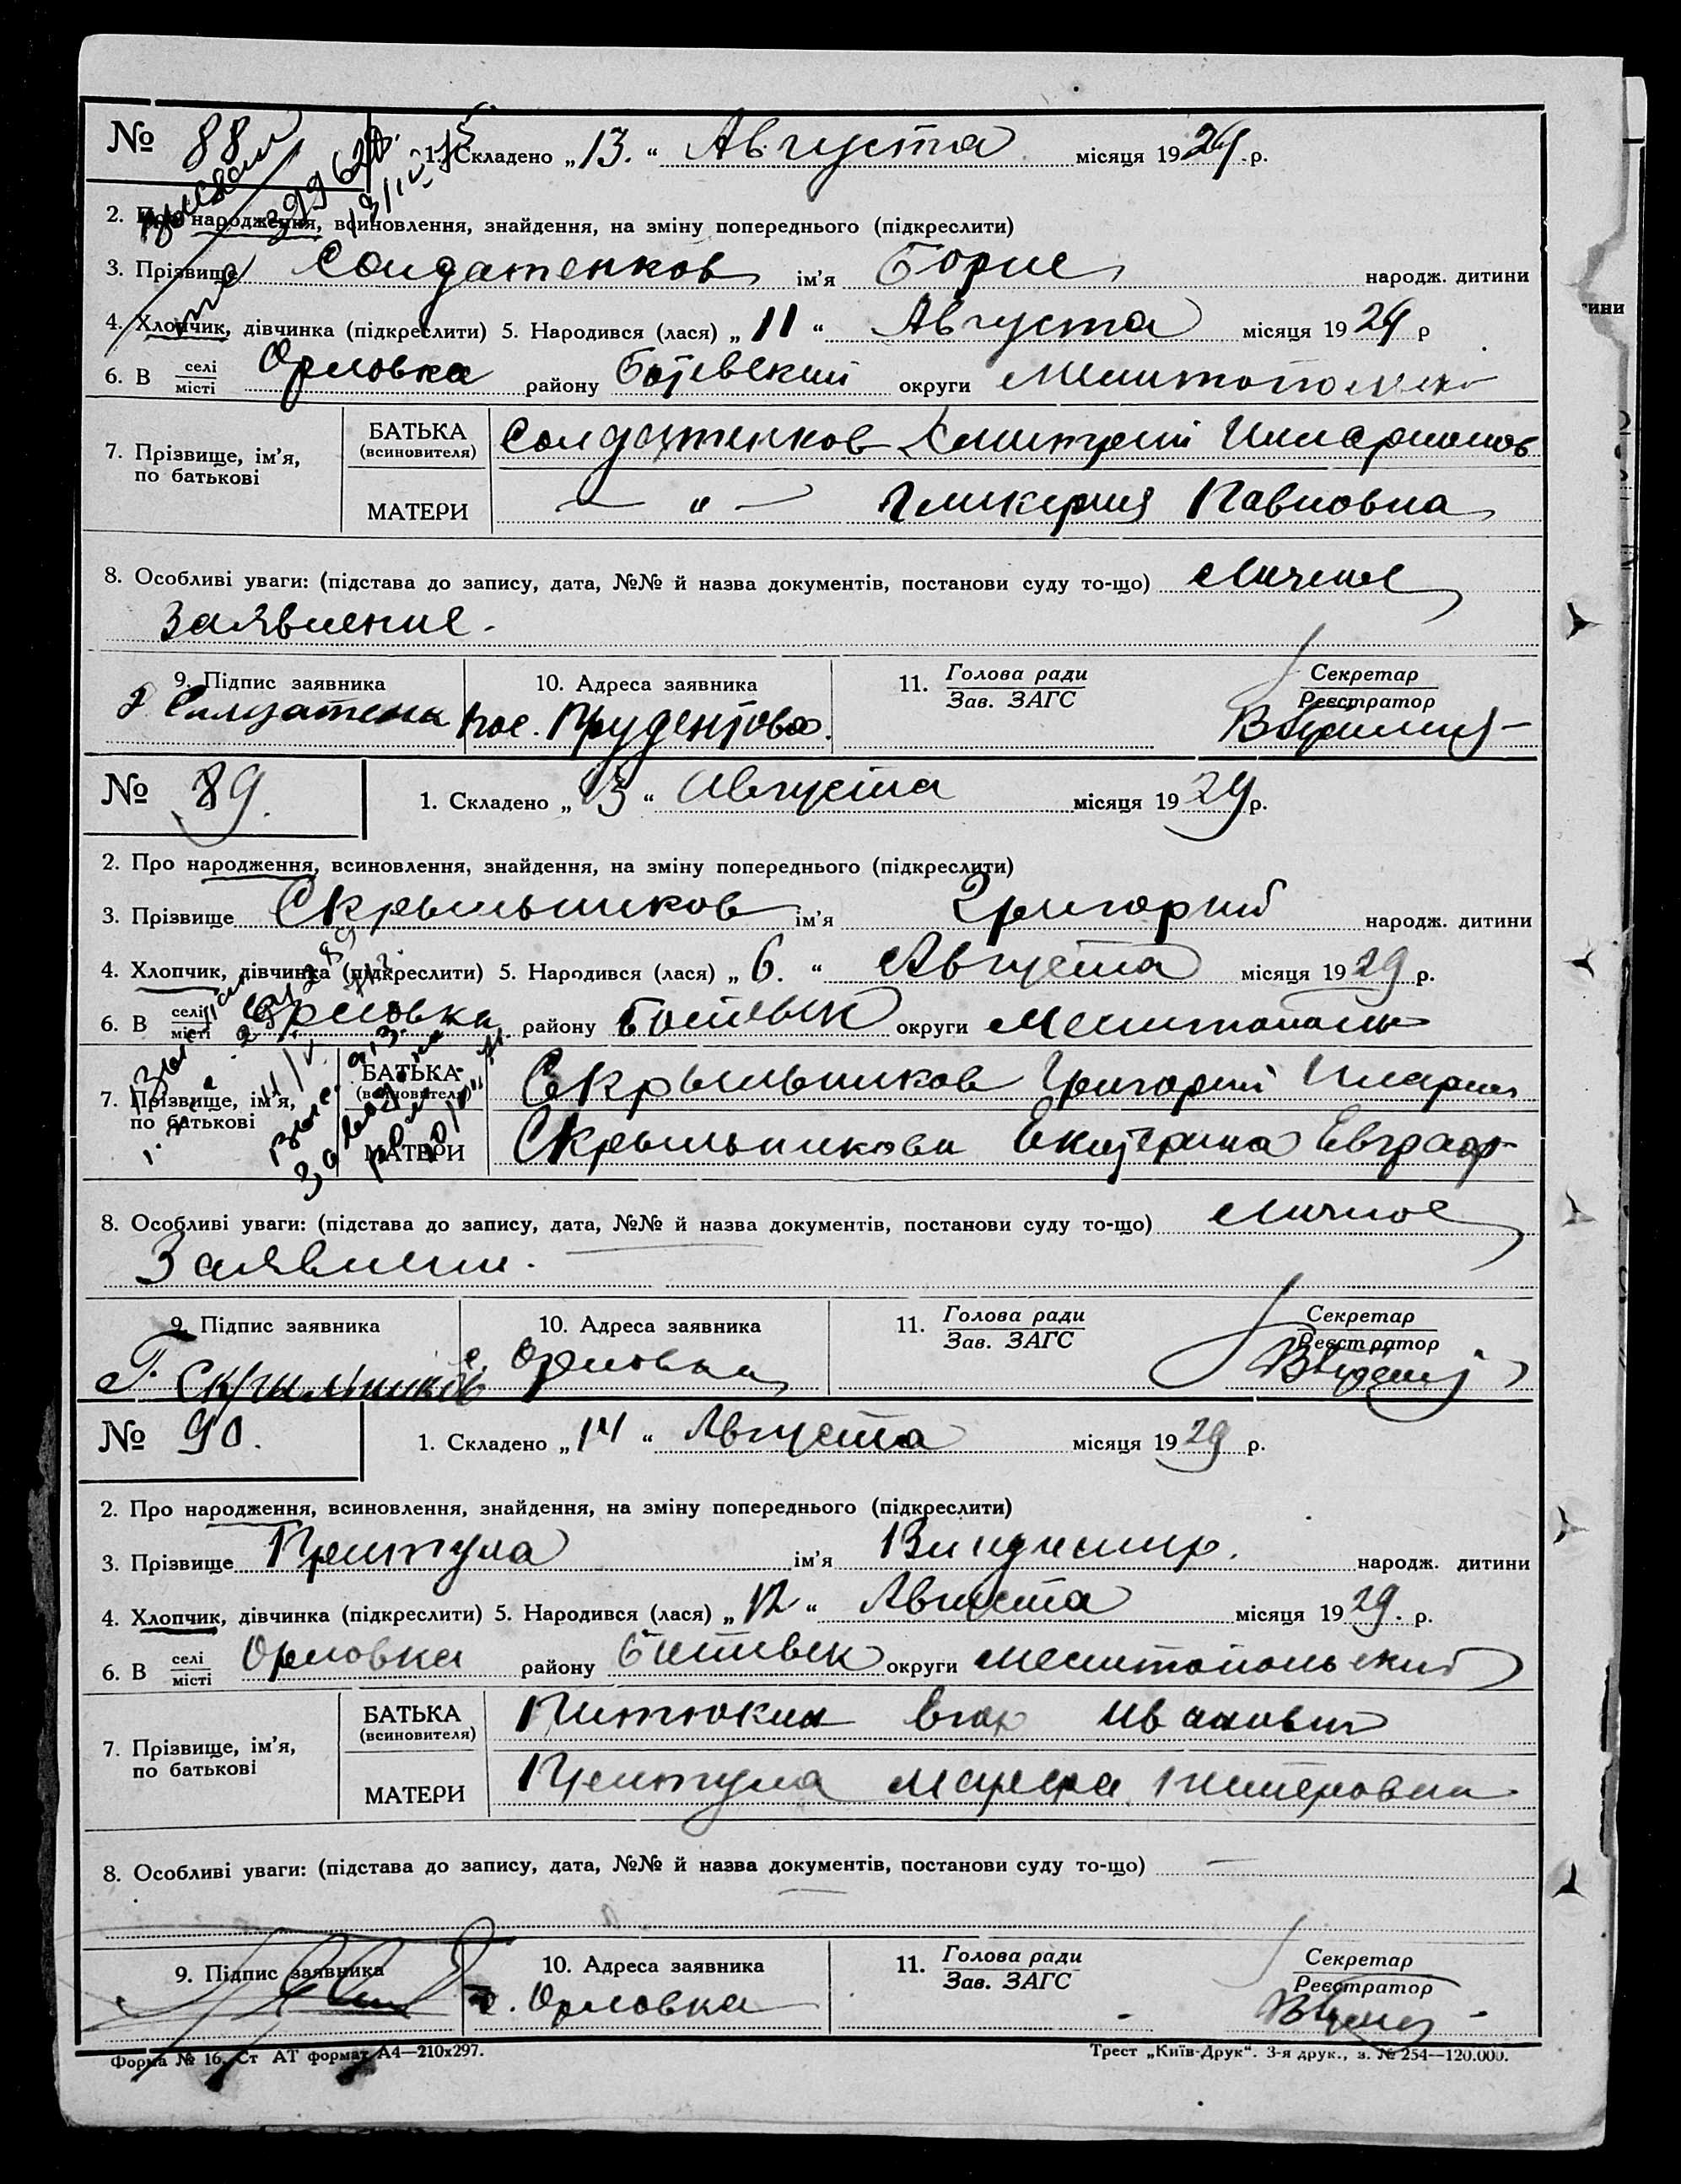 № 88 1. Складено „13.“ Августа місяця 1929 р.
2. Про народження, всиновлення, знайдення, на зміну попереднього (підкреслити)
3. Прізвище Солдатенков ім'я Борис народж. дитини
4. Хлопчик, дівчинка (підкреслити) 5. Народився (лася) „11“ Августа місяця 1929 р
6. В селі місті Орловка району Ботевский округи
7. Прізвище, ім'я, по батькові
БАТЬКА (всиновителя) Солдатенков Дмитрий Иларионов
МАТЕРИ — " — Гликерия Павловна
8. Особливі уваги: (підстава до запису, дата, №№ й назва документів, постанови суду то-що) личное
заявление.
9. Підпис заявника 10. Адреса заявника 11. Голова ради Зав. ЗАГС Секретар Реєстратор
пос.
№ 89. 1. Складено „13“ Августа місяця 1929 р.
2. Про народження, всиновлення, знайдення, на зміну попереднього (підкреслити)
3. Прізвище Скрыльников ім'я Григорий народж. дитини
4. Хлопчик, дівчинка (підкреслити) 5. Народився (лася) „6.“ Августа місяця 1929 р.
6. В селі місті Орловка району округи
7. Прізвище, ім'я, по батькові
БАТЬКА (всиновителя) Скрыльников Григорий Иларион
МАТЕРИ Скрыльникова Екатерина Евграф
8. Особливі уваги: (підстава до запису, дата, №№ й назва документів, постанови суду то-що) личное
Заявлени.
9. Підпис заявника 10. Адреса заявника 11. Голова ради Зав. ЗАГС Секретар Реєстратор
Г. Скрыльников с. Орловка
№ 90. 1. Складено „14“ Августа місяця 1929 р.
2. Про народження, всиновлення, знайдення, на зміну попереднього (підкреслити)
3. Прізвище Притула ім'я Владимир. народж. дитини
4. Хлопчик, дівчинка (підкреслити) 5. Народився (лася) „12“ Августа місяця 1929. р.
6. В селі місті Орловка району округи Мелитопольский
7. Прізвище, ім'я, по батькові
БАТЬКА (всиновителя) Егор Иванович
МАТЕРИ Притула Марфа
8. Особливі уваги: (підстава до запису, дата, №№ й назва документів, постанови суду то-що) —
9. Підпис заявника 10. Адреса заявника 11. Голова ради Зав. ЗАГС Секретар Реєстратор
с. Орловка
Форма № 16. Ст АТ формат А4—210х297. Трест „Київ-Друк“. 3-я друк., з. № 254—120.000.